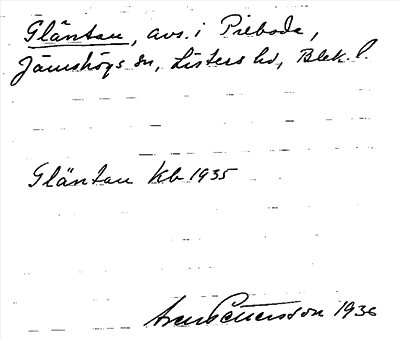 Gläntan, avs. i Pieboda,
Jämshögs sn, Listers hd, Blek. l.
Gläntan Kb 1935
Pettersson 1936